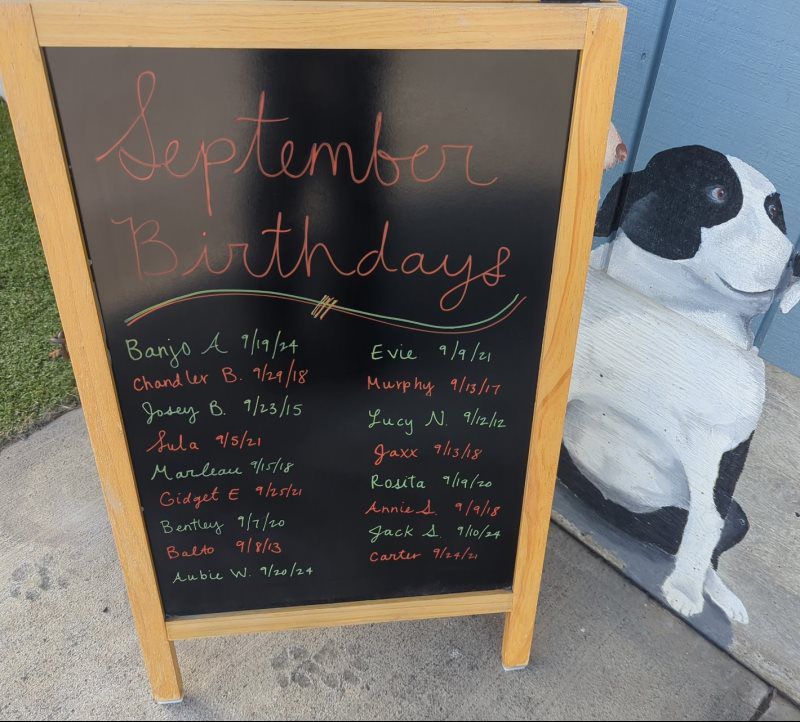 September
Birthdays
Banjo A 9/19/24
Chandler B. 9/29/18
Josey B. 9/23/15
Lula 9/5/21
Marleau 9/15/18
Gidget E 9/25/21
Bentley 9/7/20
Balto 9/8/13
Aubie W. 9/20/24
Evie 9/9/21
Murphy 9/13/17
Lucy N. 9/12/12
Jaxx 9/13/18
Rosita 9/19/20
Annie S. 9/9/18
Jack S. 9/10/24
Carter 9/24/21